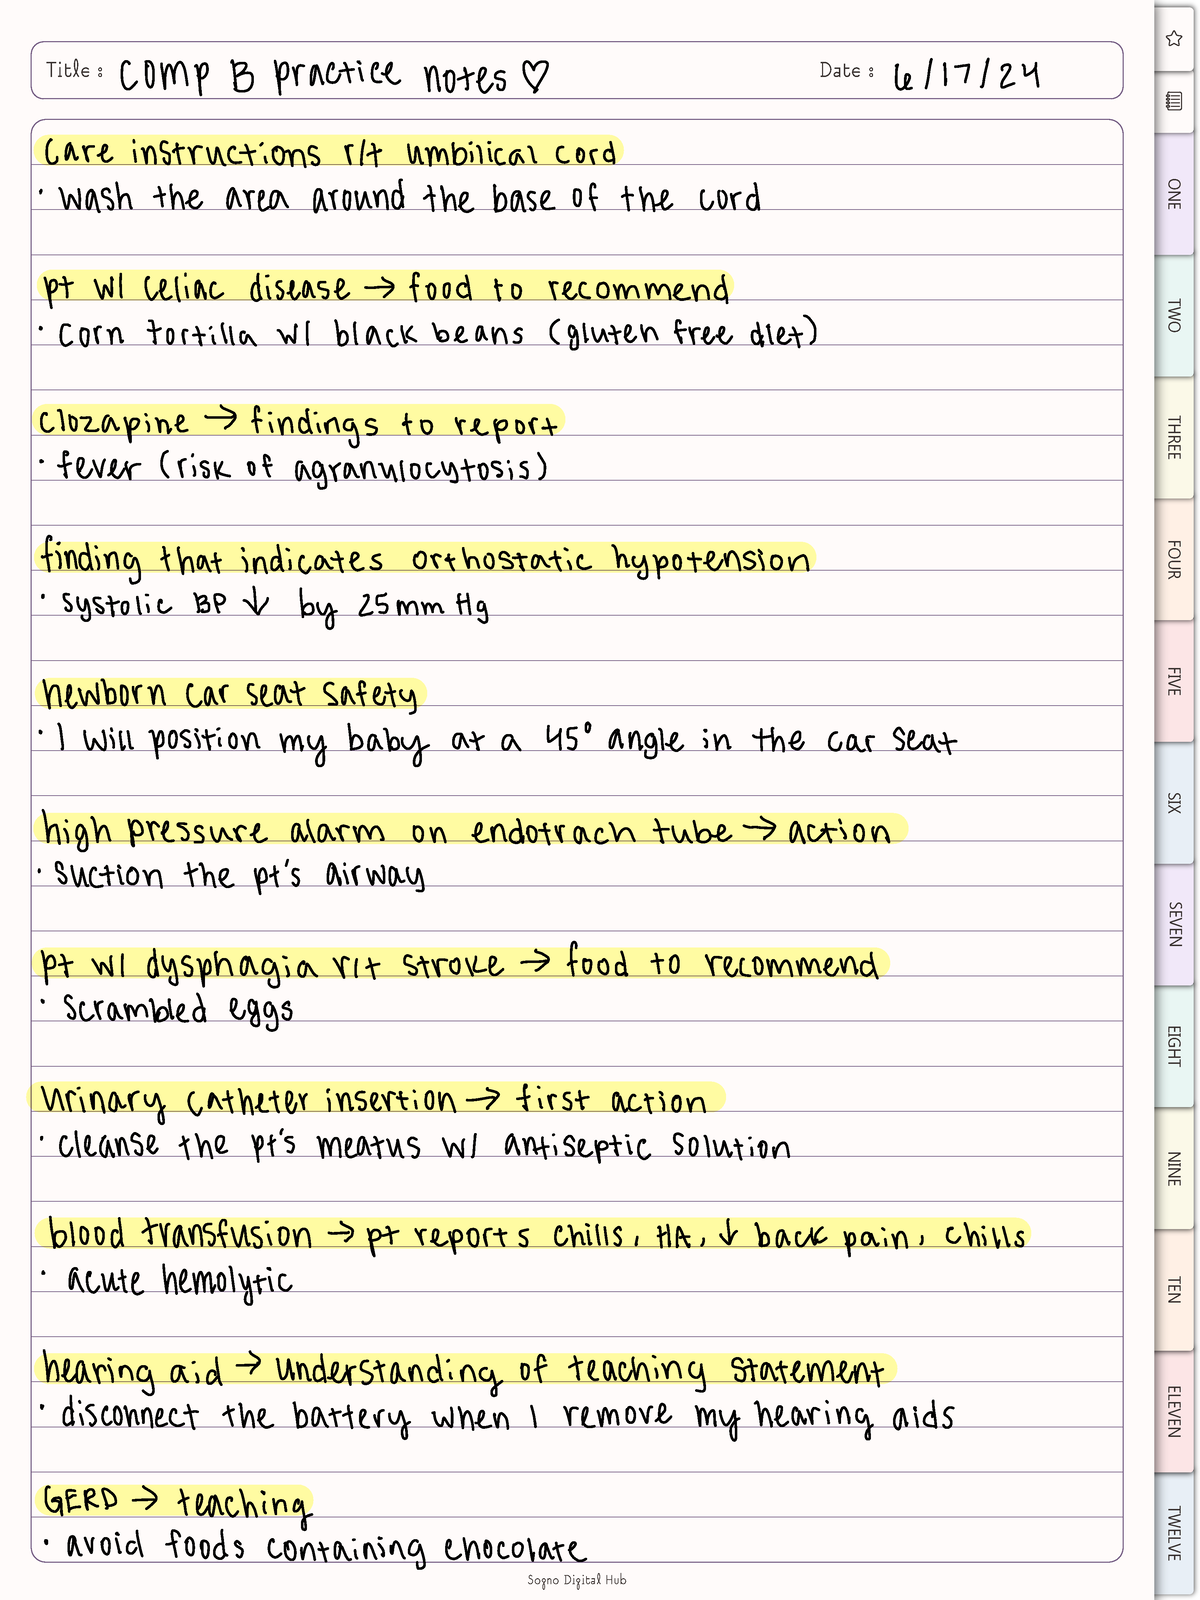 Title : Comp B practice notes ♡ Date : 6/17/24
Care instructions r/t umbilical cord
· wash the area around the base of the cord
pt w/ celiac disease → food to recommend
· corn tortilla w/ black beans (gluten free diet)
Clozapine → findings to report
· fever (risk of agranulocytosis)
finding that indicates orthostatic hypotension
· systolic BP ↓ by 25mm Hg
newborn car seat safety
· I will position my baby at a 45° angle in the car seat
high pressure alarm on endotrach tube → action
· suction the pt's airway
pt w/ dysphagia r/t stroke → food to recommend
· scrambled eggs
Urinary catheter insertion → first action
· cleanse the pt's meatus w/ antiseptic solution
blood transfusion → pt reports chills, HA, ↓ back pain, chills
· acute hemolytic
hearing aid → understanding of teaching statement
· disconnect the battery when I remove my hearing aids
GERD → teaching
· avoid foods containing chocolate
Sogno Digital Hub
ONE
TWO
THREE
FOUR
FIVE
SIX
SEVEN
EIGHT
NINE
TEN
ELEVEN
TWELVE